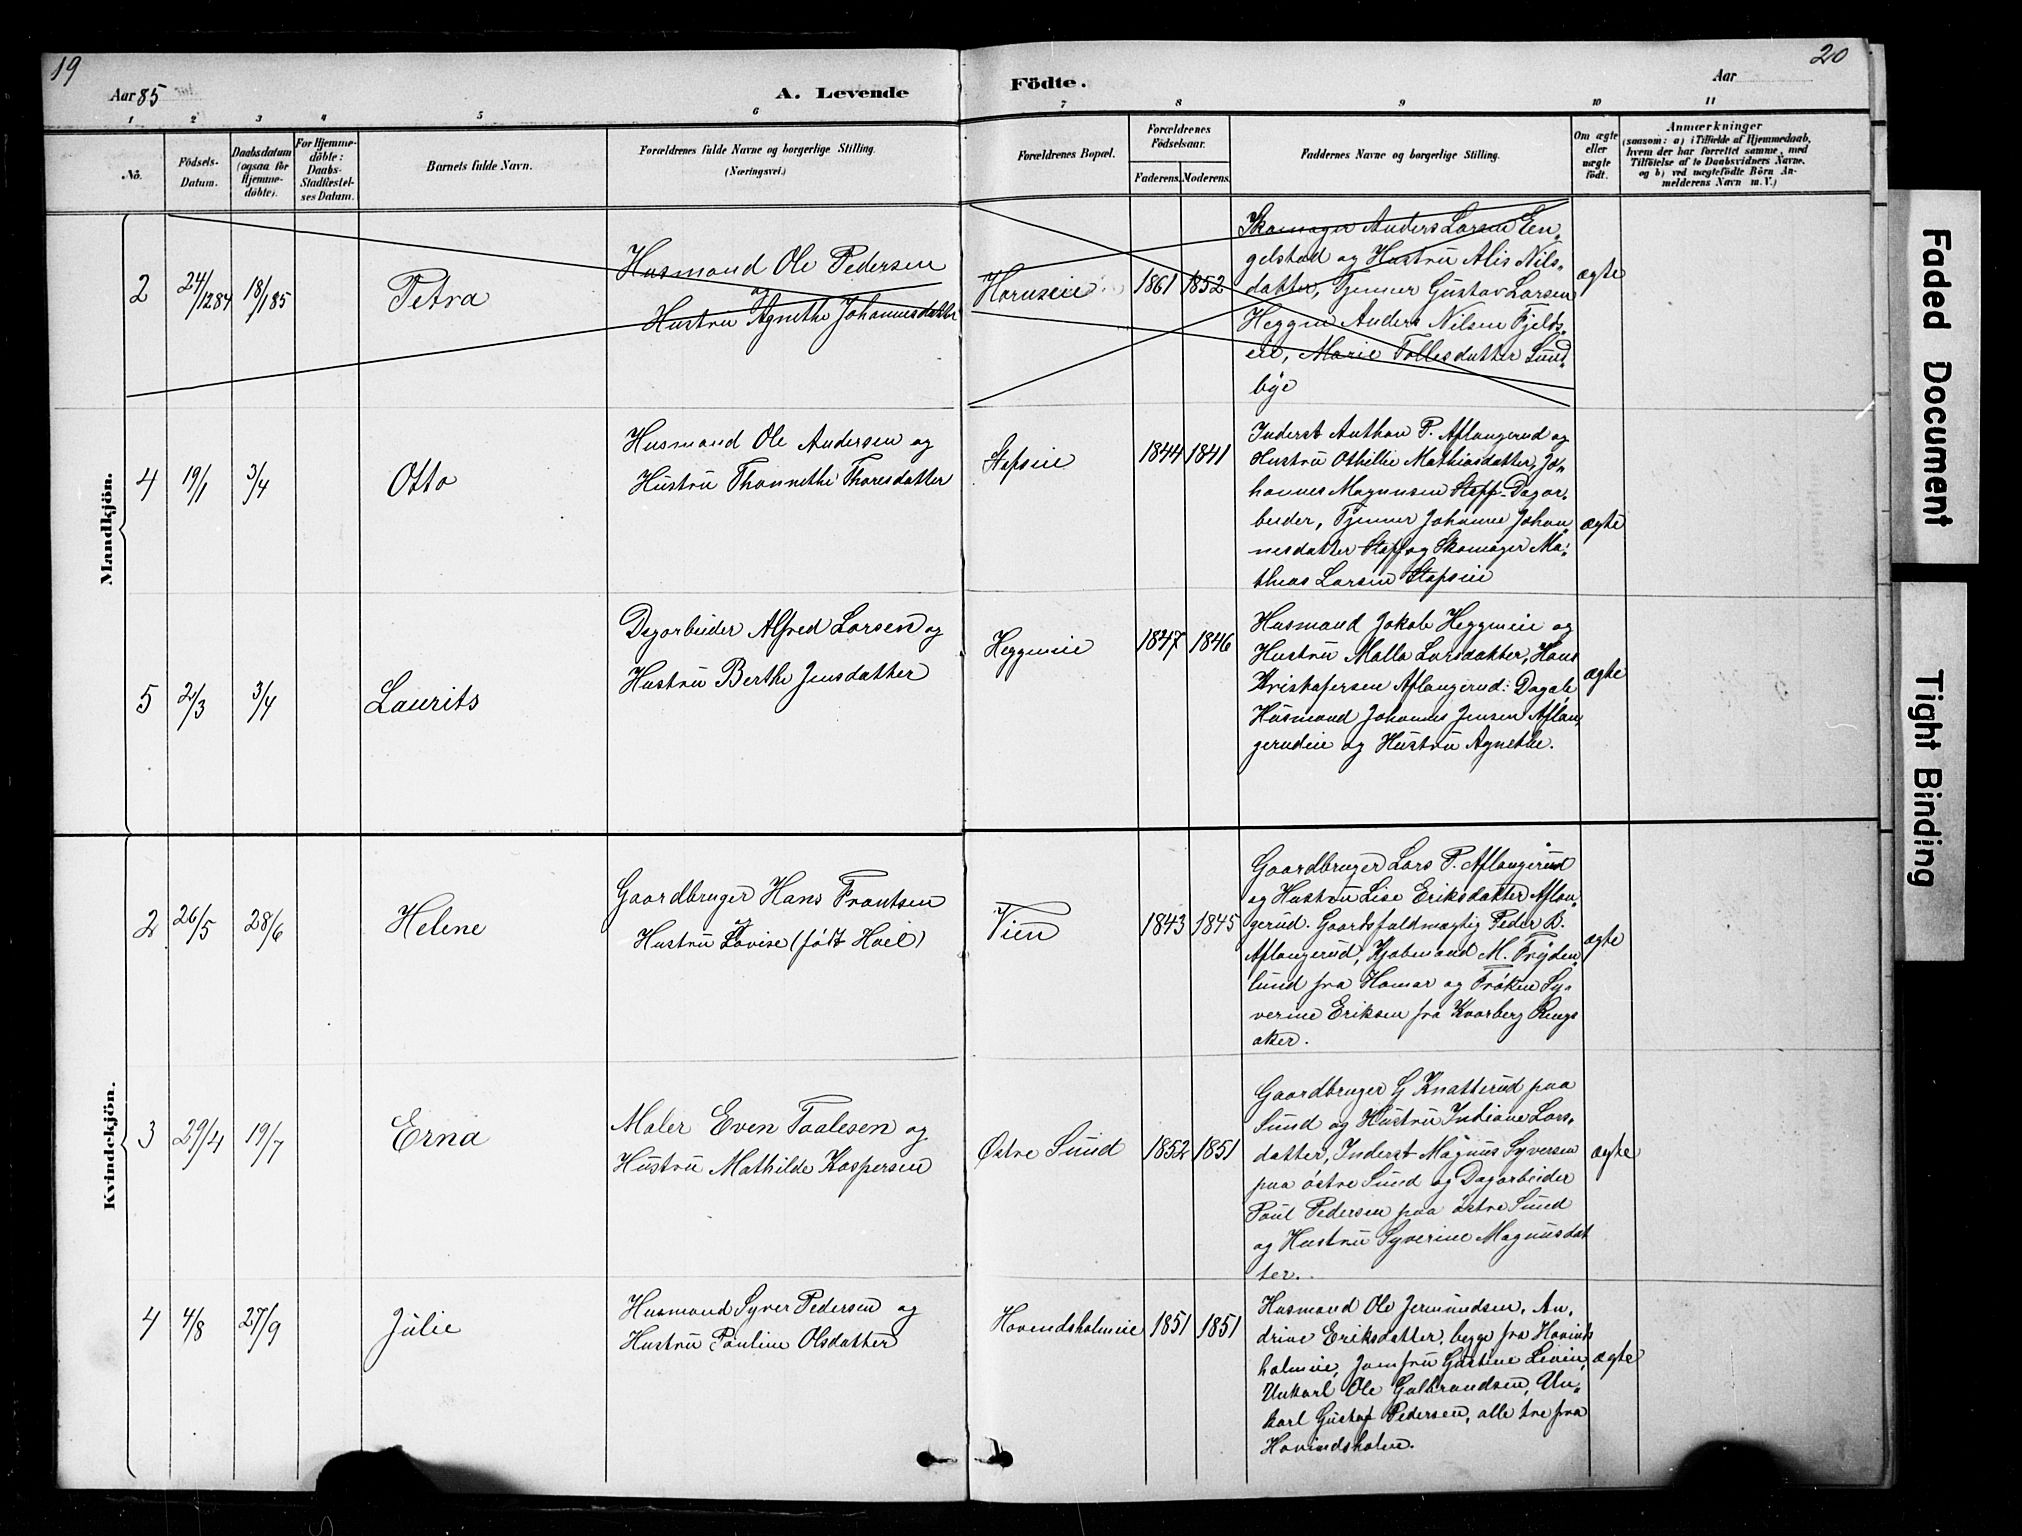 19
20
Aar 85
A. Levende
Födte.
Aar
1 2 3 4 5 6 7 8 9 10 11
No.
Födsels-
Datum.
Daabsdatum
(ogsaa for
Hjemme-
döbte).
For Hjemme-
döbte:
Daabs-
Stadfæstel-
ses Datum.
Barnets fulde Navn.
Forældrenes fulde Navne og borgerlige Stilling.
(Næringsvei.)
Forældrenes Bopæl.
Forældrenes
Födselsaar.
Faderens. Moderens.
Faddernes Navne og borgerlige Stilling.
Om ægte
eller
uægte
födt.
Anmærkninger
(saasom: a) i Tilfælde af Hjemmedaab,
hvem der har forrettet samme, med
Tilföielse af to Daabsvidners Navne,
og b) ved uægtefödte Börn An-
melderens Navn m. V.)
Mandkjön.
2
24/1284
18/185
Petra
Husmand Ole Pedersen
og
Hustru Agnethe Johannesdatter
Hornseie
1861 1852
Skomager Anders Larsen En-
gelstad og Hustru Alis Nils-
datter, Tjener Gustav Larsen
Heggen Anders Nilsen Fjelds-
eie, Marie Tollesdatter Sund-
bye
ægte
4
19/1
3/4
Otto
Husmand Ole Andersen og
Hustru Thonnethe Thoresdatter
Stafseie
1844 1841
Inderst Anthon P. Aflangerud og
Hustru Othilie Mathiasdatter, Jo-
hannes Magnusen Staff Dagar-
beider, Tjener Johanne Johan-
nesdatter Staff og Skomager Ma-
thias Larsen Stafseie
ægte
5
2/3
3/4
Laurits
Dagarbeider Alfred Larsen og
Hustru Berthe Jensdatter
Heggeneie
1847 1846
Husmand Jakob Heggeneie og
Hustru Malla Larsdatter, Hans
Kristofersen Aflangerud: Dagab.
Husmand Johannes Jensen Aflan-
gerudeie og Hustru Agnethe.
ægte
Kvindekjön.
2
26/5
28/6
Helene
Gaardbruger Hans Frantsen
og
Hustru Lovise (født Hoel)
Vien
1843 1845
Gaardbruger Lars P. Aflangerud
og Hustru Lise Eriksdatter Aflan-
gerud. Gaardsfuldmægtig Peder B.
Aflangerud, Kjøbmand M. Frøyden-
lund fra Hamar og Frøken Sy-
verine Eriksen fra Kvarberg Rings
aker.
ægte
3
29/4
19/7
Erna
Maler Even Taalesen og
Hustru Mathilde Kaspersen
Østre Sund
1852 1851
Gaardbruger G Knatterud paa
Sund og Hustru Indiane Lars-
datter, Inderst Magnus Syversen
paa østre Sund og Dagarbeider
Paul Pedersen paa østre Sund
og Hustru Syverine Magnusdat
ter.
ægte
4
4/8
27/9
Julie
Husmand Syver Pedersen og
Hustru Pauline Olsdatter
Hovendsholmeie
1851 1851
Husmand Ole Jermundsen, An-
drine Eriksdatter, begge fra Hovinds
holmeie, Jomfru Gustine Levin,
Unkarl Ole Gulbrandsen, Un-
karl Gustaf Pedersen, alle tre fra
Hovindsholm.
ægte
Faded Document
Tight Binding